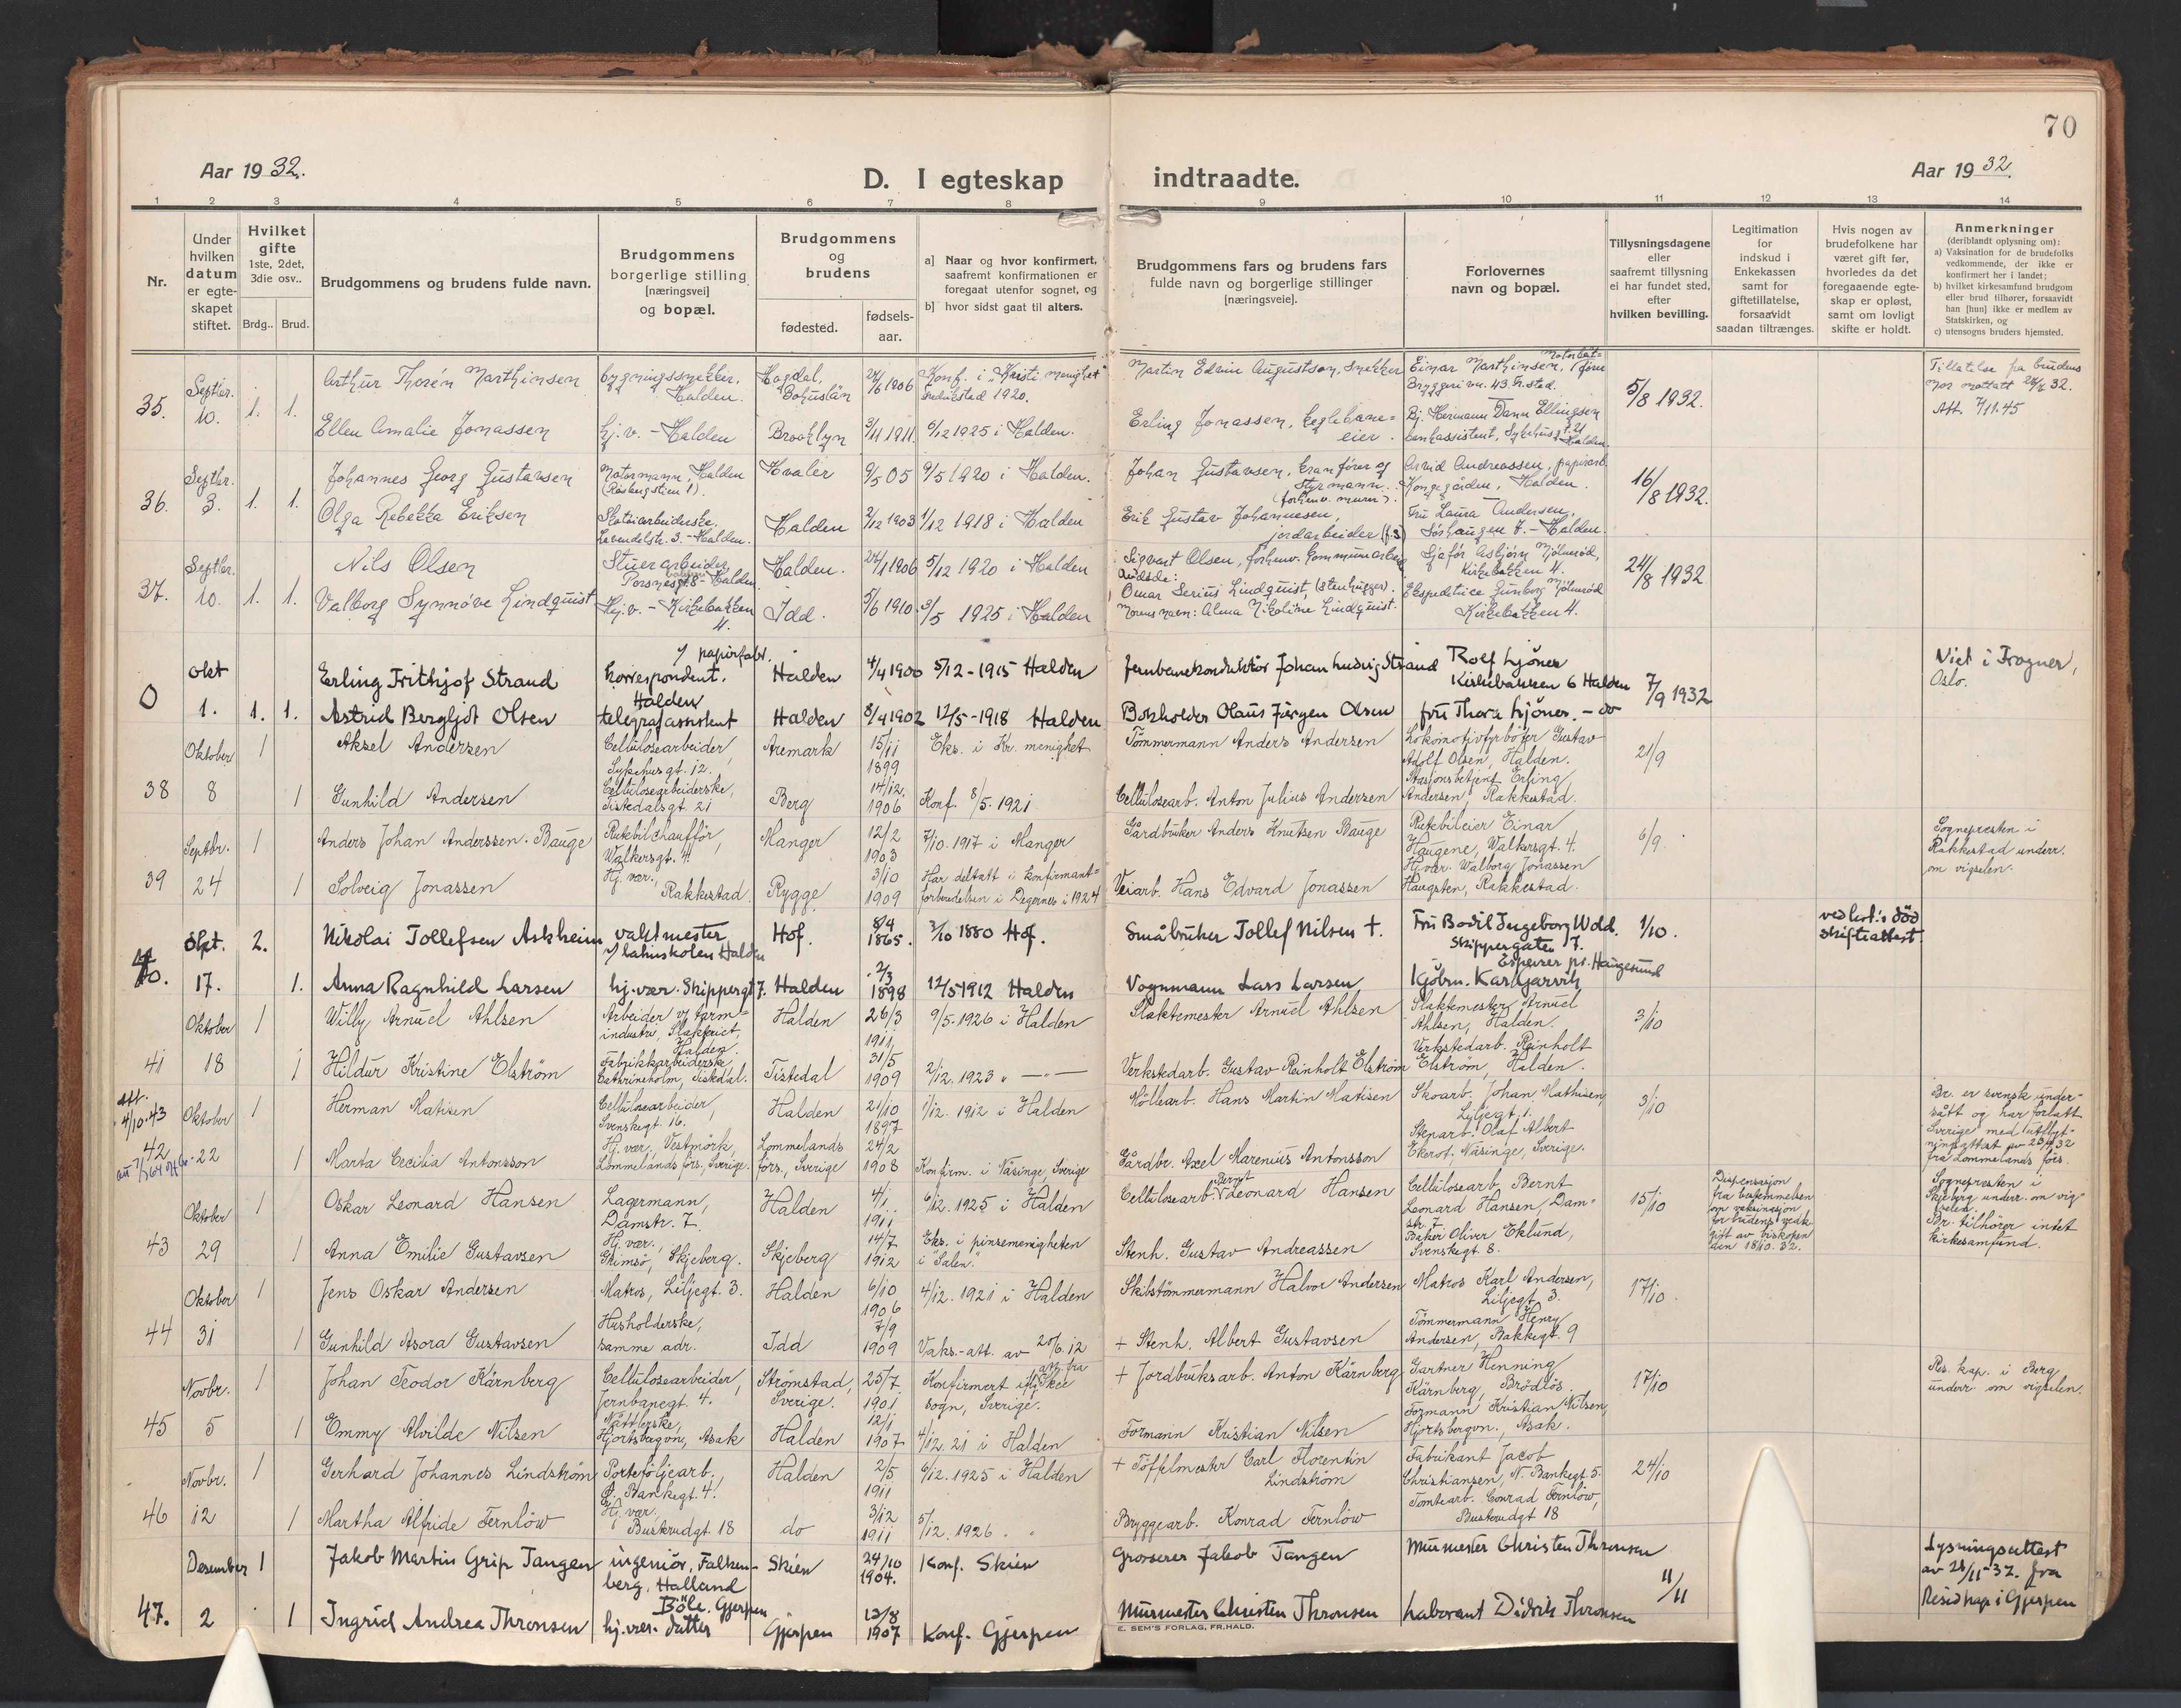 70
Aar 1932.
D. I egteskap indtraadte.
Aar 1932.
1 2 3 4 5 6 7 8 9 10 11 12 13 14
Nr.
Under hvilken datum er egteskapet stiftet.
Hvilket gifte 1ste, 2det, 3die osv..
Brdg.. Brud.
Brudgommens og brudens fulde navn.
Brudgommens borgerlige stilling [næringsvei] og bopæl.
Brudgommens og brudens
fødested.
fødsels-aar.
a] Naar og hvor konfirmert, saafremt konfirmationen er foregaat utenfor sognet, og
b] hvor sidst gaat til alters.
Brudgommens fars og brudens fars fulde navn og borgerlige stillinger [næringsveie].
Forlovernes navn og bopæl.
Tillysningsdagene eller saafremt tillysning ei har fundet sted, efter hvilken bevilling.
Legitimation for indskud i Enkekassen samt for giftetillatelse, forsaavidt saadan tiltrænges.
Hvis nogen av brudefolkene har været gift før, hvorledes da det foregaaende egteskap er opløst, samt om lovligt skifte er holdt.
Anmerkninger
(deriblandt oplysning om):
a) Vaksination for de brudefolks vedkommende, der ikke er konfirmert her i landet;
b) hvilket kirkesamfund brudgom eller brud tilhører, forsaavidt han [hun] ikke er medlem av Statskirken, og
c) utensogns bruders hjemsted.
35. Septbr. 10. 1. 1.
Arthur Thorén Marthinsen bygningssnekker, Halden. Bohuslän 1906 Konf. i "Kristi menighet" Fredrikstad 1920. Martin Edvin Augustson, Snekker Einar Marthinsen, 5/8 1932. Tillatelse fra brudens mor mottatt
Att. 7/11.45
Ellen Amalie Jonassen hj.v. - Halden Brooklyn 3/11 1911 6/12 1925 i Halden. Erling Jonassen, keglebaneeier. Hermann Dann Ellingsen
36. Septbr. 3. 1. 1.
Johannes Georg Gustavsen Motormann, Halden Hvaler 9/5 05 9/5 1920 i Halden. Johan Gustavsen, kranfører og styrmann. Arvid Andreassen, papirarb. Kongegården, Halden. 16/8 1932.
Olga Rebekka Eriksen Lavendelstr. 3. - Halden. Halden 2/12 1903 1/12 1918 i Halden Erik Gustav Johannesen, jordarbeider Fru Laura Andersen, Sørhaugen 7. - Halden.
37. Septbr. 10. 1. 1.
Nils Olsen Stuerarbeider Halden. 24/1 1906 5/12 1920 i Halden Sigvart Olsen, forhenv. kommunearbeid Asbjørn Mjølnerød, Kirkebakken 4. 24/8 1932
Valborg Synnøve Lindquist Hj.v. - Kirkebakken 4. Idd. 5/6 1910 3/5 1925 i Halden Omar Serius Lindquist, (stenhugger). Morens navn: Alma Nikoline Lindquist. Ekspeditrice Gunborg Mjølnerød Kirkebakken 4.
0 Okt 1. 1. 1.
Erling Frithjof Strand Korrespondent v/ papirfabr. Halden Halden 4/4 1900 5/12 - 1915 Halden Jernbanekonduktør Johan Ludvig Strand Rolf Kjøner Kirkebakken 6 Halden 7/9 1932 Viet i Frogner, Oslo.
Astrid Bergljot Olsen telegrafassistent Halden 8/4 1902 12/5 - 1918 Halden Bokholder Olaus Jørgen Olsen fru Thora Kjøner. - do
38 Oktober 8 1 1
Aksel Andersen Cellulosearbeider, Sykehusgt. 12. Aremark 15/11 1899 Eks. i Kr. menighet Tømmermann Anders Andersen Lokomotivfyrbøter Gustav Adolf Olsen, Halden. 21/9
Gunhild Andersen Cellulosearbeiderske, Tistedalsgt. 21 Berg 14/12. 1906 Konf. 8/5. 1921 Cellulosearb. Anton Julius Andersen Stasjonsbetjent Erling Andersen, Rakkestad.
39 Septbr. 24 1 1
Anders Johan Anderssen. Bauge Rutebilchauffør, Walkersgt. 4. Manger 12/2 1903 7/10. 1917 i Manger Gårdbruker Anders Knutsen Bauge Rutebileier Einar Haugene, Walkersgt. 4. 6/9. Sognepresten i Rakkestad underr. om vigselen.
Solveig Jonassen Hj. vær. Rakkestad Rygge 3/10 1909 Har deltatt i konfirmantforberedelsen i Degernes i 1924 Veiarb. Hans Edvard Jonassen Hj. vær. Walborg Jonassen Haugsten, Rakkestad.
40. Okt. 17. 2. 1.
Nikolai Tollefsen Askheim vaktmester v/ Latinskolen Halden Hof. 8/4 1865. 3/10 1880 Hof. Småbruker Tollef Nilsen †. Fru Bodil Ingeborg Wold. Skippergaten 7. 1/10. ved hust.'s død skifteattest.
Anna Ragnhild Larsen hj. vær. Skippergt 7. Halden 2/3 1898 12/5 1912 Halden Vognmann Lars Larsen Kjøbm. Karl Gjærvik Espevær pr. Haugesund
41 Oktober 18 1 1
Willy Arnuel Ahlsen Arbeider v/ tarmindustri, Slakteriet, Halden. Halden 26/3 1911 9/5. 1926 i Halden Slaktemester Arnuel Ahlsen Slaktemester Arnuel Ahlsen, Halden. 3/10
Hildur Kristine Elström Fabrikkarbeiderske Cathrineholm, Tistedal. Tistedal 31/5 1909 2/12. 1923 " — " — Verkstedarb. Gustav Reinholt Elström Verkstedarb. Reinholt Elström, Halden.
Att. 4/10.43
42 Oktober 22 1 1
Herman Matisen Cellulosearbeider, Svenskegt. 16. Halden 21/10 1897 1/12. 1912 i Halden Møllearb. Hans Martin Matisen Skoarb. Johan Mathisen, Liljegt. 1. 3/10 Br. er svensk undersått og har forlatt Sverige med utflytningsattest fra Lommelands förs.
Marta Cecilia Antonsson Hj. vær. Vestmörk, Lommelands förs., Sverige. Lommelands förs., Sverige 24/2 1908 Konfirm. i Näsinge, Sverige Gårdbr. Axel Marenius Antonsson Stenarb. Olaf Albert Ekerot, Näsinge, Sverige.
43 Oktober 29 1 1
Oskar Leonard Hansen Lagermann, Damstr. 7. Halden 4/1 1911 6/12. 1925 i Halden Cellulosearb. Bernt Leonard Hansen Cellulosearb. Bernt Leonard Hansen, Damstr. 7. 15/10 Dispensasjon fra bestemmelsen om vaksinasjon for brudens vedk. gitt av biskopen den 18/10. 32. Sognepresten i Skjeberg underr. om vigselen. Br. tilhører intet kirkesamfund.
Anna Emilie Gustavsen Hj. vær. Grimsö, Skjeberg. Skjeberg 14/7 1912 Eks. i pinsemenigheten i "Salen". Stenh. Gustav Andreassen Baker Oliver Eklund, Svenskegt. 8.
44 Oktober 31 1 1
Jens Oskar Andersen Matros, Liljegt. 3. Halden 6/10 1906 4/12. 1921 i Halden Skibstömmermann Halvor Andersen Matros Karl Andersen, Liljegt. 3. 17/10.
Gunhild Asora Gustavsen Husholderske, samme adr. Idd 7/9 1909 Vaks.-att. av 20/6. 12 + Stenh. Albert Gustavsen Tömmermann Henry Andersen, Bakkegt. 9
45 Novbr. 5 1 1
Johan Teodor Kärnberg Cellulosearbeider, Jernbanegt. 4. Strömstad, Sverige. 25/7 1901 Konfirmert iflg. att. fra Skee sogn, Sverige. + Jordbruksarb. Anton Kärnberg Gartner Henning Kärnberg, Brödlös. 17/10 Res. kap. i Berg underr. om vigselen.
Emmy Alvilde Nilsen Hjortsbergvn, Asak Halden 12/1 1907 4/12. 21 i Halden Formann Kristian Nilsen Formann Kristian Nilsen, Hjortsbergvn., Asak.
46 Novbr. 12 1 1
Gerhard Johannes Lindström Porteføljearb., Ø. Bankegt. 4. Halden 2/5 1911 6/12. 1925 i Halden + Töffelmester Carl Florentin Lindström Fabrikant Jacob Christiansen, N. Bankegt. 5. 24/10
Martha Alfride Fernlöw Hj. vær. Buskrudgt. 18 do 3/12 1911 5/12. 1926 " " Bryggearb. Konrad Fernlöw Tomtearb. Conrad Fernlöw, Buskrudgt 18
47. Desember 2 1 1
Jakob Martin Grip Tangen ingeniör, Falkenberg, Halland Skien 24/10 1904. Konf. Skien Grosserer Jakob Tangen Murmester Christen Thronsen 11/11 Lysningsattest av 28/11 - 32. fra Resid kap i Gjerpen
Ingrid Andrea Thronsen Böle. Gjerpen hj. vær. datter Gjerpen 12/8 1907 Konf. Gjerpen Murmester Christen Thronsen Laborant Didrik Thronsen
E. SEM'S FORLAG, FR.HALD.